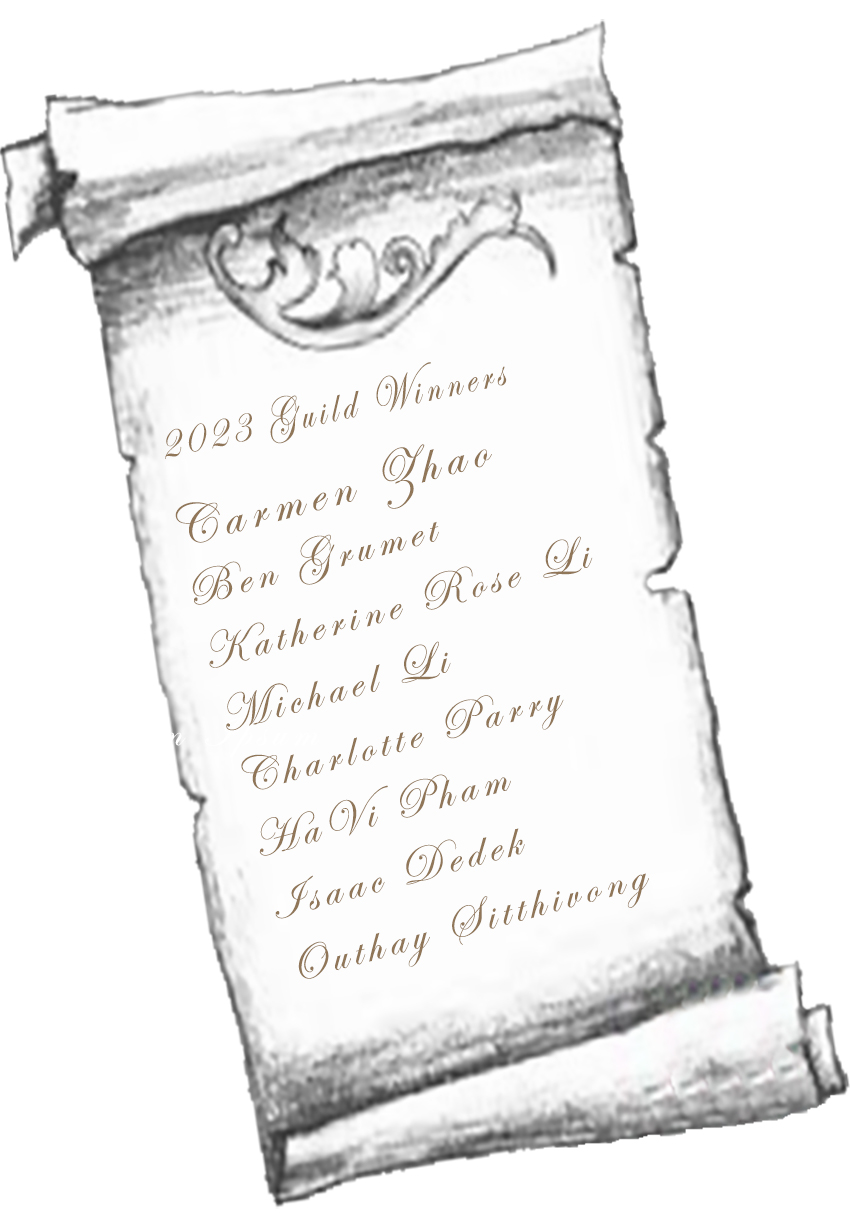 2023 Guild Winners
Carmen Zhao
Ben Grumet
Katherine Rose Li
Michael Li
Charlotte Parry
HaVi Pham
Isaac Dedek
Outhay Sitthivong